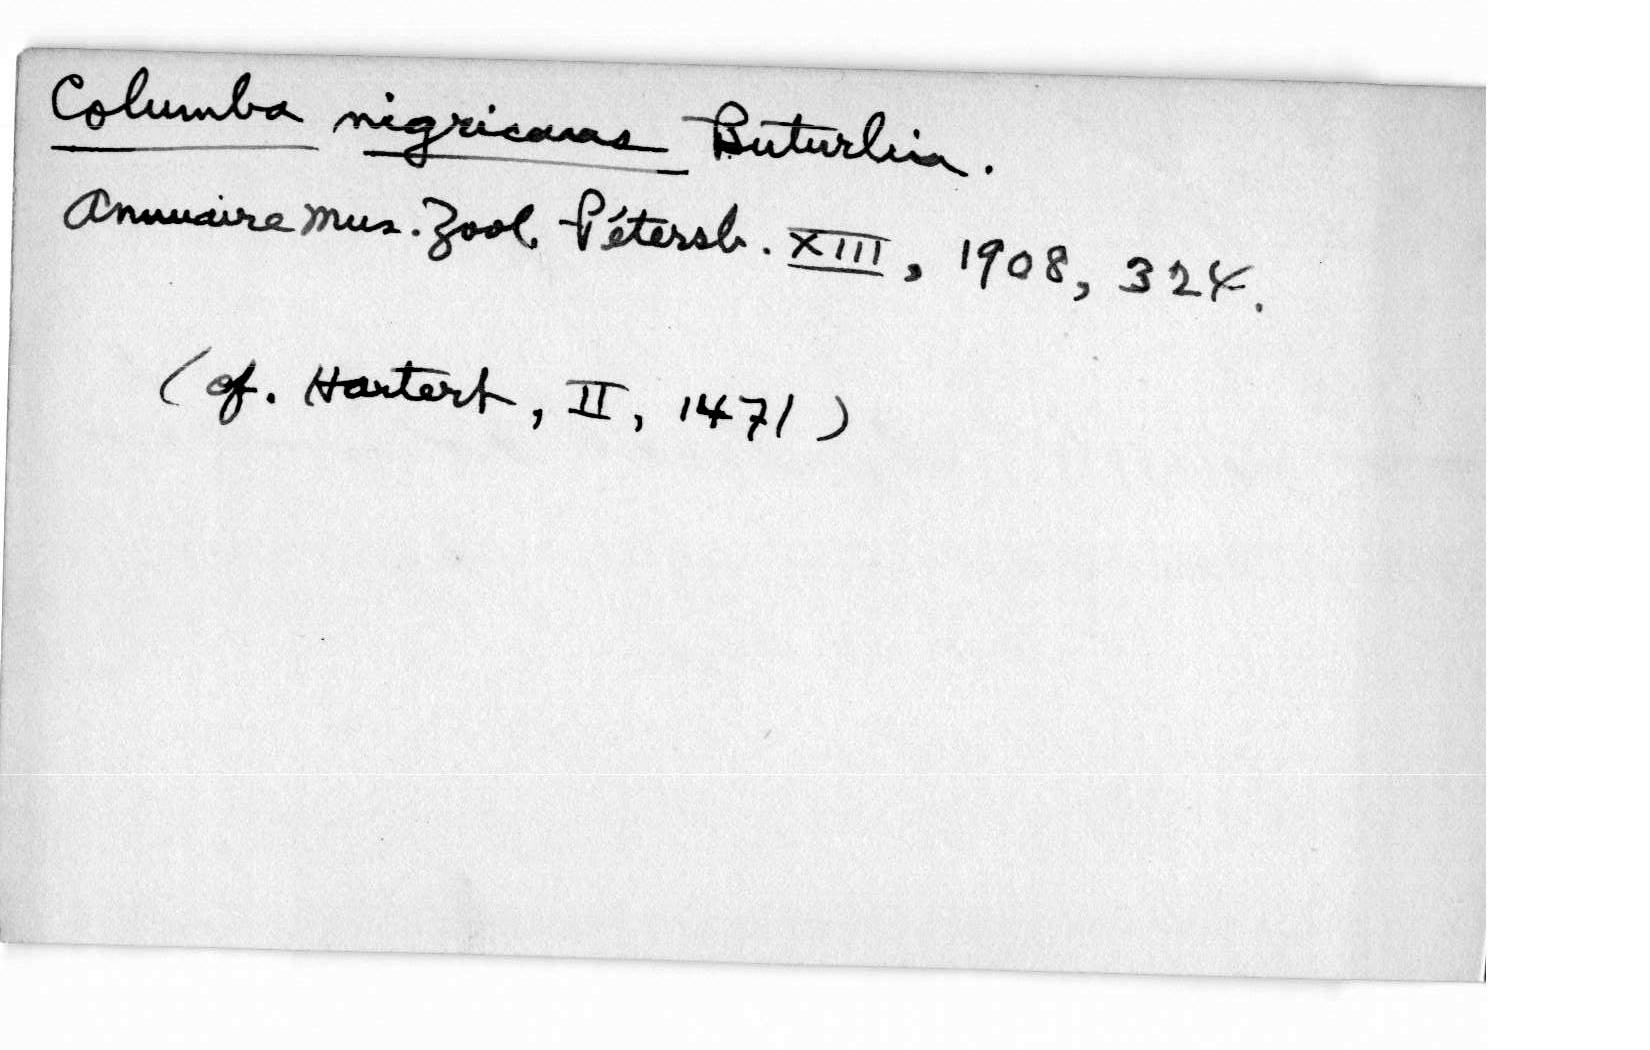 Columba nigricans Buturlin.
Annuaire Mus. Zool. Pétersb. XIII, 1908, 324.
(cf. Hartert, II, 1471)